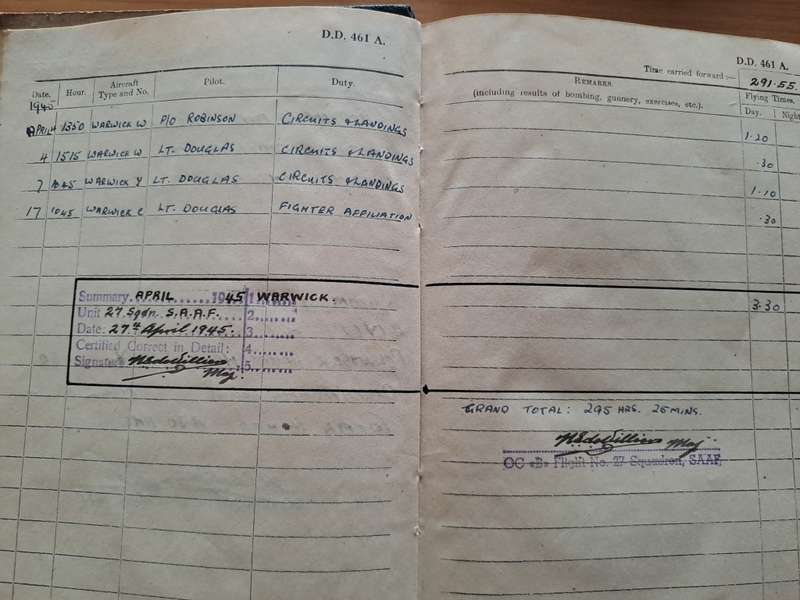 D.D. 461 A.
Date. Hour. Aircraft Type and No. Pilot. Duty.
1945
APRIL 4 1350 WARWICK W P/O ROBINSON CIRCUITS & LANDINGS
4 1515 WARWICK W LT. DOUGLAS CIRCUITS & LANDINGS
7 1045 WARWICK Y LT. DOUGLAS CIRCUITS & LANDINGS
17 1045 WARWICK C LT. DOUGLAS FIGHTER AFFILIATION
Summary. APRIL 1945 1 WARWICK.
Unit 27 Sqdn. S.A.A.F. 2
Date. 27th April 1945. 3
Certified Correct in Detail: 4
Signature Maj. 5
D.D. 461 A.
Time carried forward:— 291.55
REMARKS Flying Times.
(including results of bombing, gunnery, exercises, etc.). Day. Night
1.20
.30
1.10
.30
3.30
GRAND TOTAL: 295 HRS. 25 MINS.
Maj.
OC «B» Flight No. 27 Squadron, SAAF,